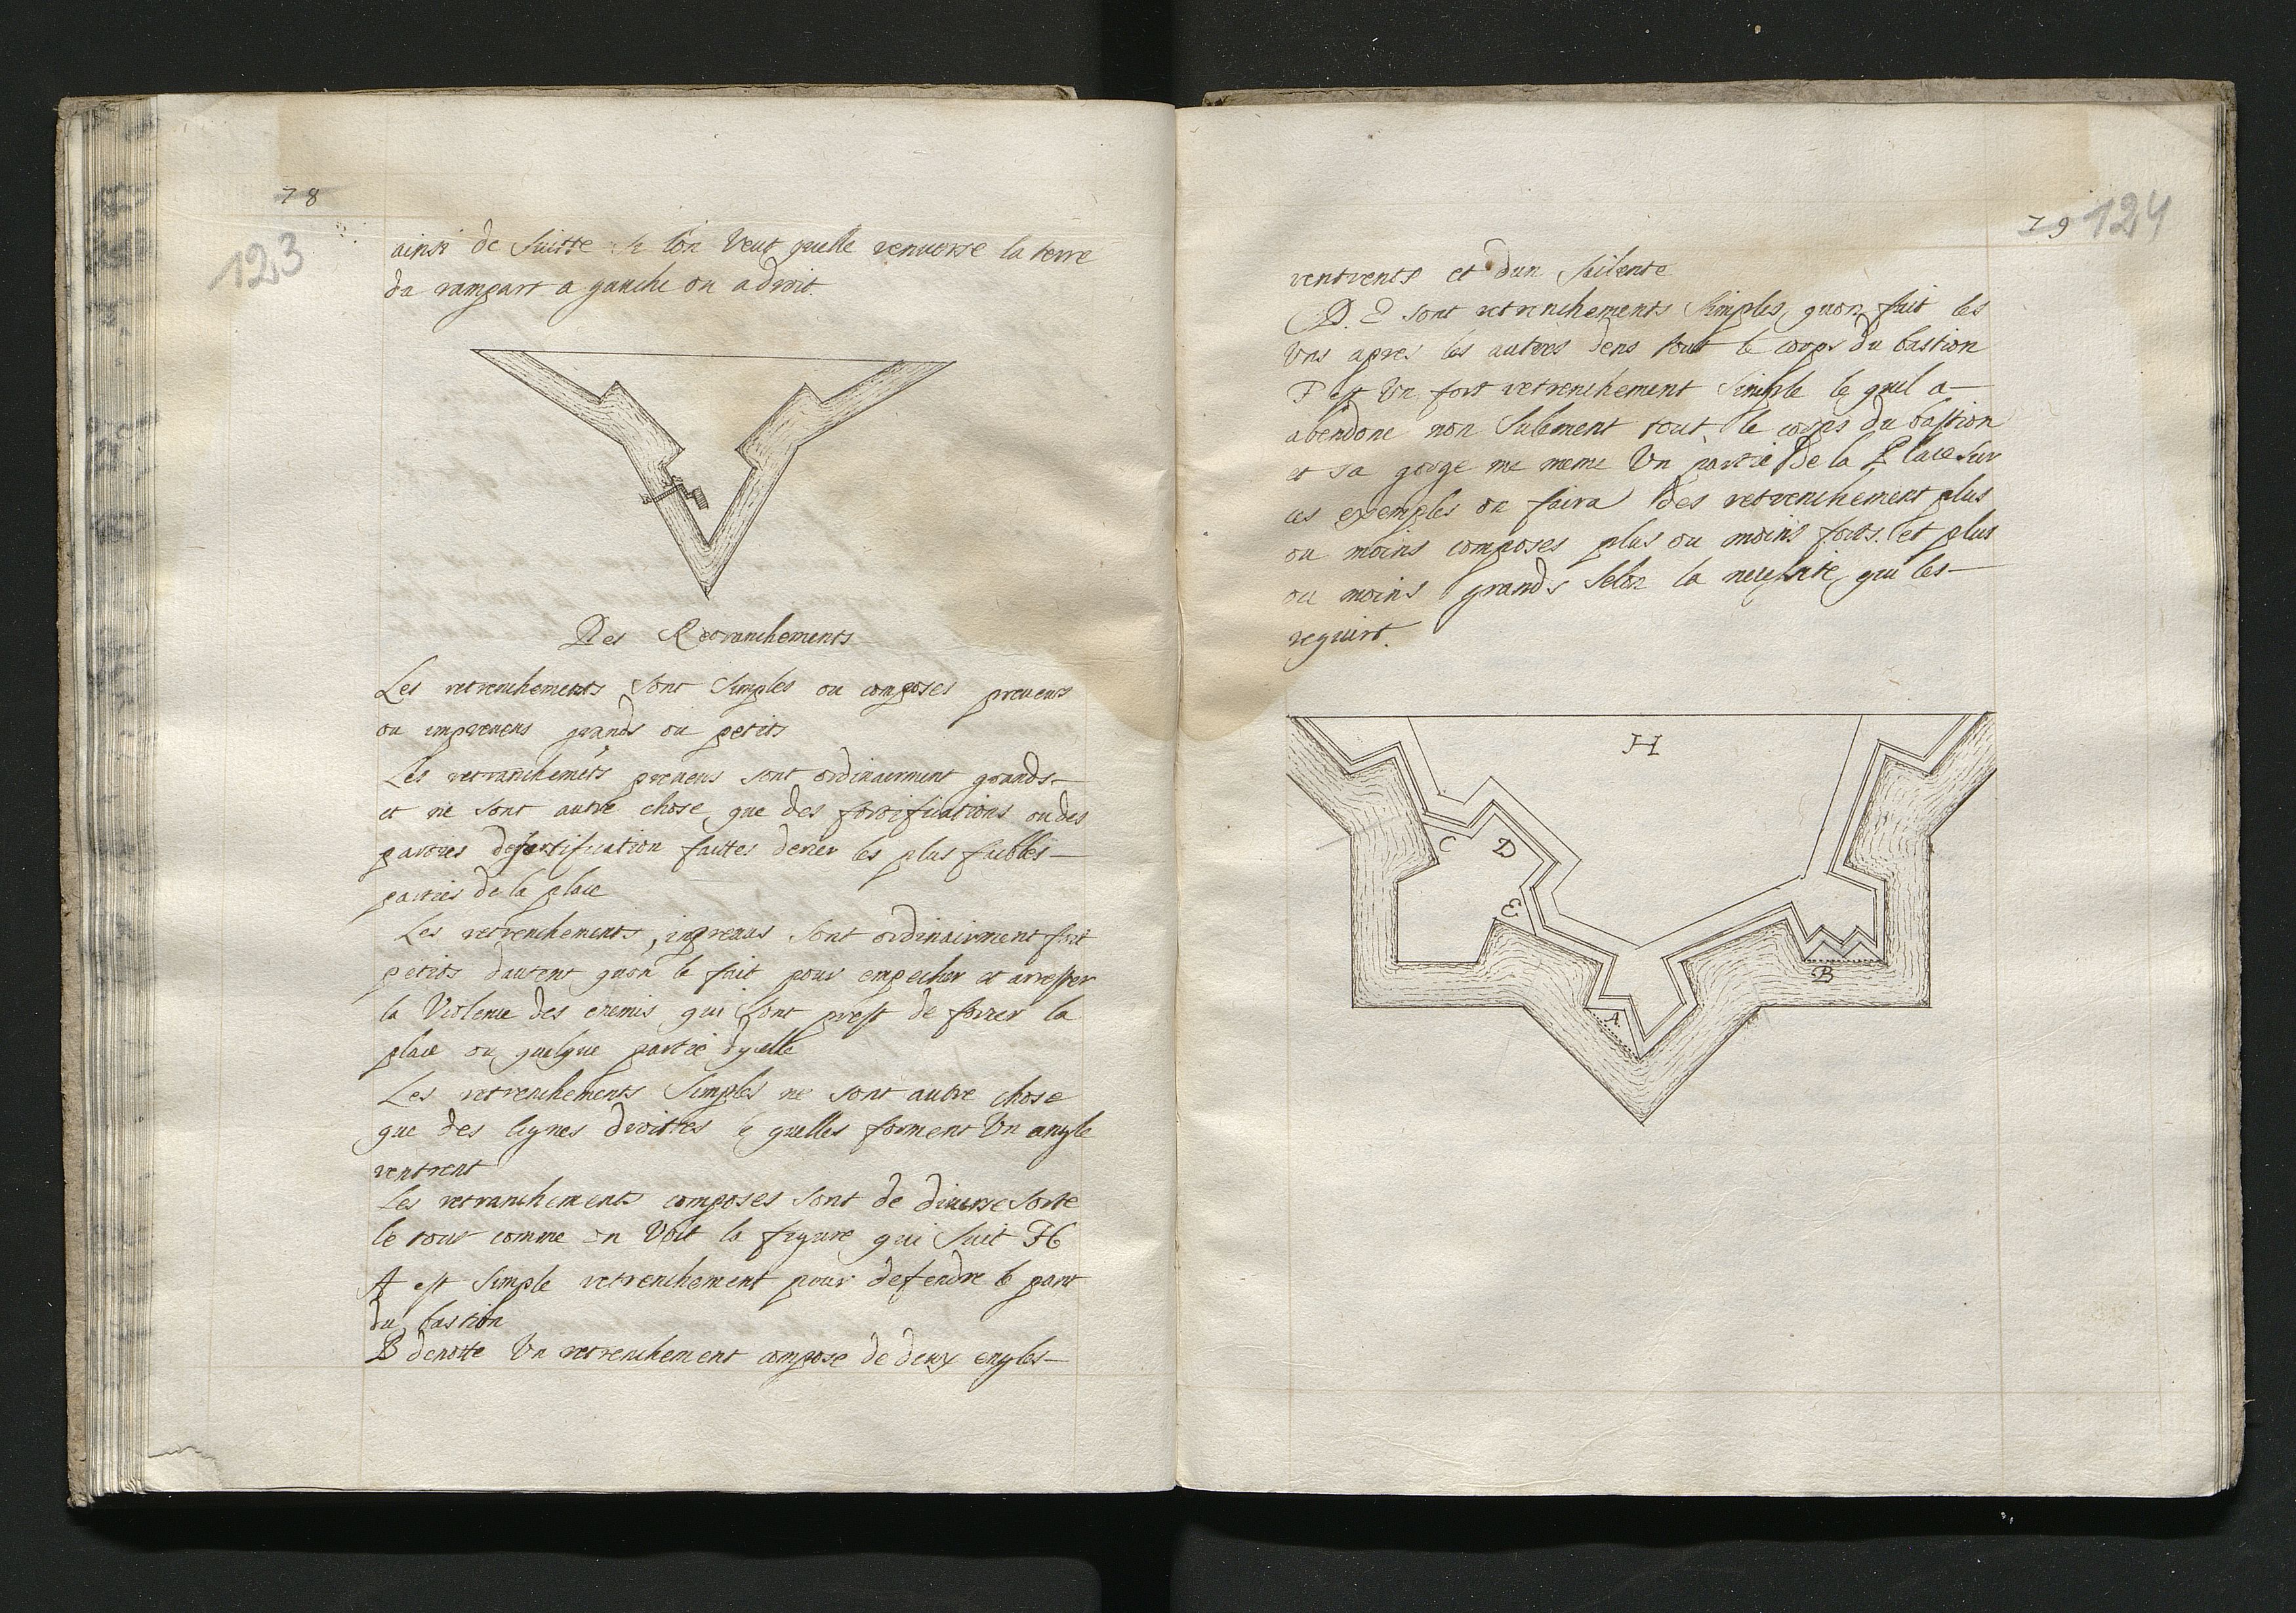 78
123
ainsi de suitte si lon veut quelle renverse la terre
du rampart a gauche ou adroit.
Des Retranchements
Les retrenchements sont simples ou composes preveus
ou impreveus grands ou petits
Les retranchemets preveus sont ordinairment grands
et ne sont autre chose que des fortifications ou des
parties defortification faittes derier les plus faibles
parties de la place
Les retrenchements, inpreveus sont ordinairment fort
petits dautent quon le fait pour empecher et arrester
la violence des enemis qui sont prest de forcer la
place ou quelque partie dycelle
Les retrenchements simples ne sont autre chose
que des lignes droittes quelles forment un angle
rentrent
Les retranchements composes sont de diverse sorte
le tout comme on voit la figure qui suit H
A est simple retrenchement pour defendre le pant
du bastion
B denotte un retrenchement compose de deux engles
79 124
rentrents et dun silente
D. E sont retrenchements simples quon fait les
uns apres les autres dens tout le corps du bastion
F est un fort retrenchement simple le quel a
abendone non sulement tout le corps du bastion
et sa gorge me meme un partie de la Place sur
ces exemples on faira des retrenchement plus
ou moins composes plus ou moins forts. et plus
ou moins grands selon la necessite qui les
requirt.
H
C D
E
B
A